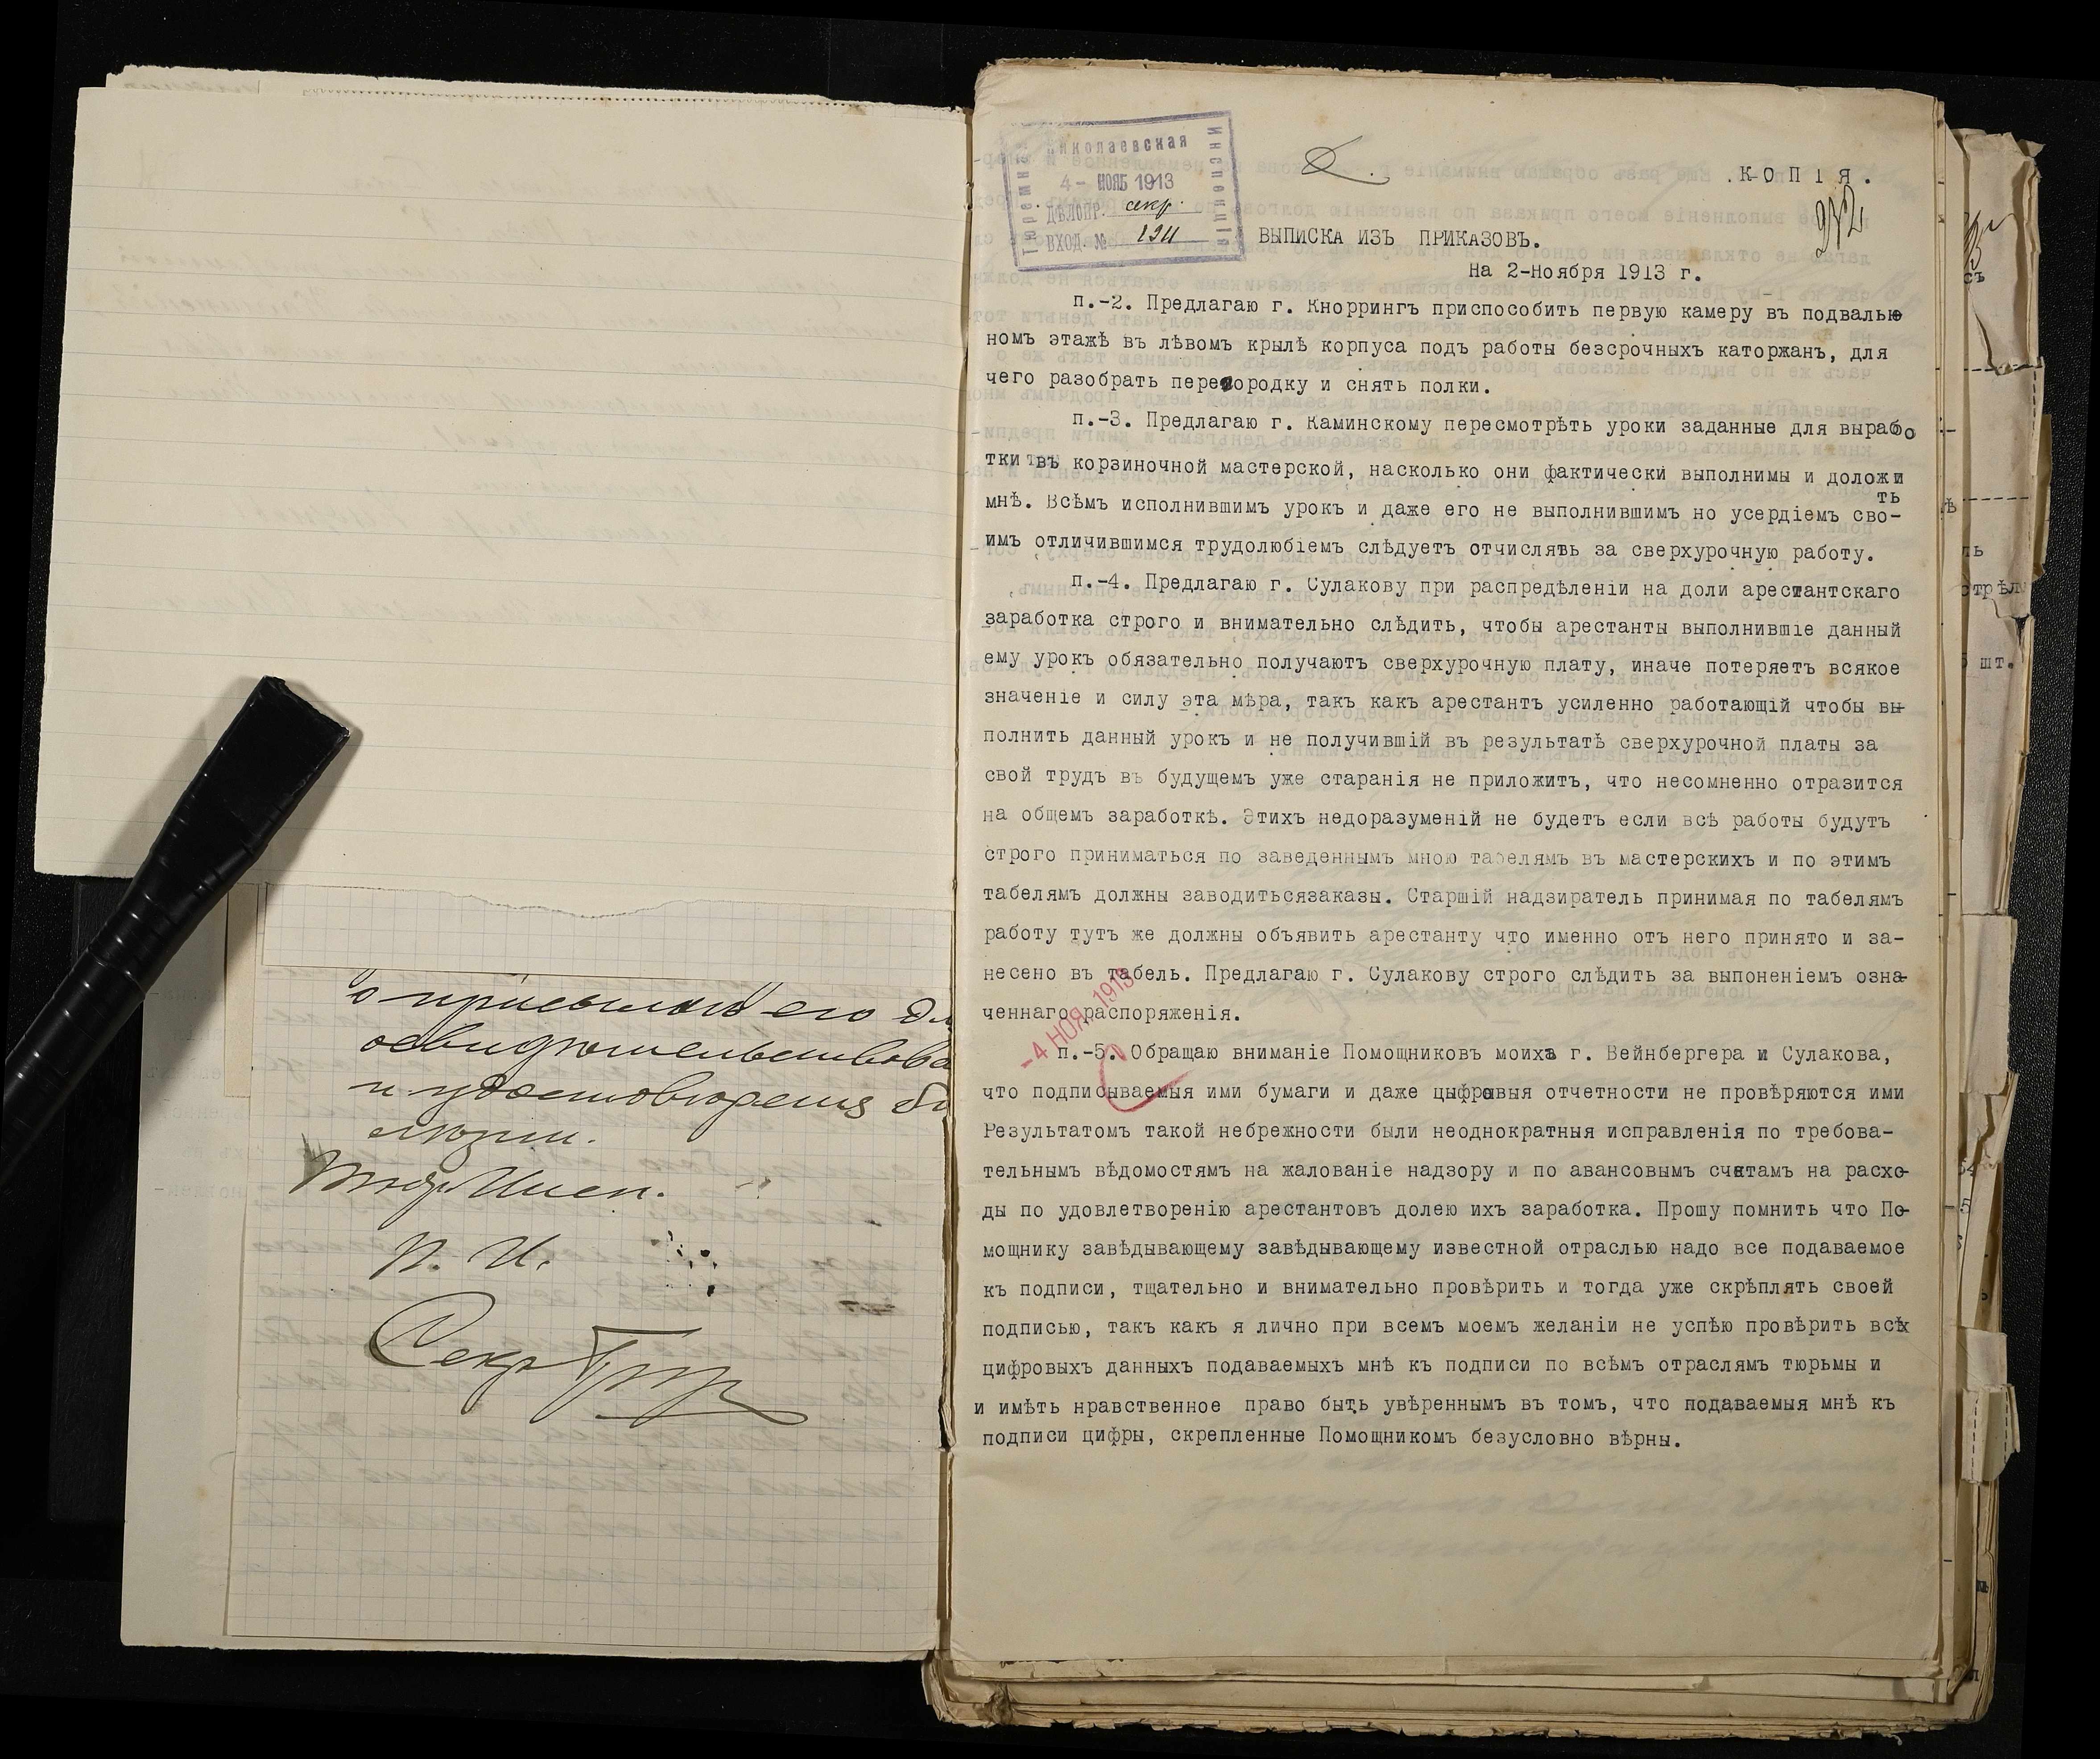 о присылкѣ его
освидѣтельствова
и удостовѣренія
П. И.
Секр
Николаевская
Тюремная
Инспекція
4- НОЯБ 1913
ДѢЛОПР. секр.
ВХОД. №
.КОПІЯ.
ВЫПИСКА ИЗЪ ПРИКАЗОВЪ.
На 2-Ноября 1913 г.
п.-2. Предлагаю г. Кноррингъ приспособить первую камеру въ подвалью
номъ этажѣ въ лѣвомъ крылѣ корпуса подъ работы безсрочныхъ каторжанъ, для
чего разобрать перегородку и снять полки.
п.-3. Предлагаю г. Каминскому пересмотрѣть уроки заданные для вырабо
тки въ корзиночной мастерской, насколько они фактически выполнимы и доложи
ть
мнѣ. Всѣмъ исполнившимъ урокъ и даже его не выполнившимъ но усердіемъ сво-
имъ отличившимся трудолюбіемъ слѣдуетъ отчислять за сверхурочную работу.
п.-4. Предлагаю г. Сулакову при распредѣленіи на доли арестантскаго
заработка строго и внимательно слѣдить, чтобы арестанты выполнившіе данный
ему урокъ обязательно получаютъ сверхурочную плату, иначе потеряетъ всякое
значеніе и силу эта мѣра, такъ какъ арестантъ усиленно работающій чтобы вы-
полнить данный урокъ и не получившій въ результатѣ сверхурочной платы за
свой трудъ въ будущемъ уже старанія не приложитъ, что несомненно отразится
на общемъ заработкѣ. Этихъ недоразуменій не будетъ если всѣ работы будутъ
строго приниматься по заведеннымъ мною табелямъ въ мастерскихъ и по этимъ
табелямъ должны заводитьсязаказы. Старшій надзиратель принимая по табелямъ
работу тутъ же должны объявить арестанту что именно отъ него принято и за-
несено въ табель. Предлагаю г. Сулакову строго слѣдить за выпоненіемъ озна-
ченнаго распоряженія.
-4 НОЯ. 1913
п.-5. Обращаю вниманіе Помощниковъ моихъ г. Вейнбергера и Сулакова,
что подписываемыя ими бумаги и даже цыфровыя отчетности не провѣряются ими
Результатомъ такой небрежности были неоднократныя исправленія по требова-
тельнымъ вѣдомостямъ на жалованіе надзору и по авансовымъ счетамъ на расхо-
ды по удовлетворенію арестантовъ долею ихъ заработка. Прошу помнить что По-
мощнику завѣдывающему завѣдывающему известной отраслью надо все подаваемое
къ подписи, тщательно и внимательно провѣрить и тогда уже скрѣплять своей
подписью, такъ какъ я лично при всемъ моемъ желаніи не успѣю провѣрить всѣх
цифровыхъ данныхъ подаваемыхъ мнѣ къ подписи по всѣмъ отраслямъ тюрьмы и
и имѣть нравственное право быть увѣреннымъ въ томъ, что подаваемыя мнѣ къ
подписи цифры, скрепленные Помощникомъ безусловно вѣрны.